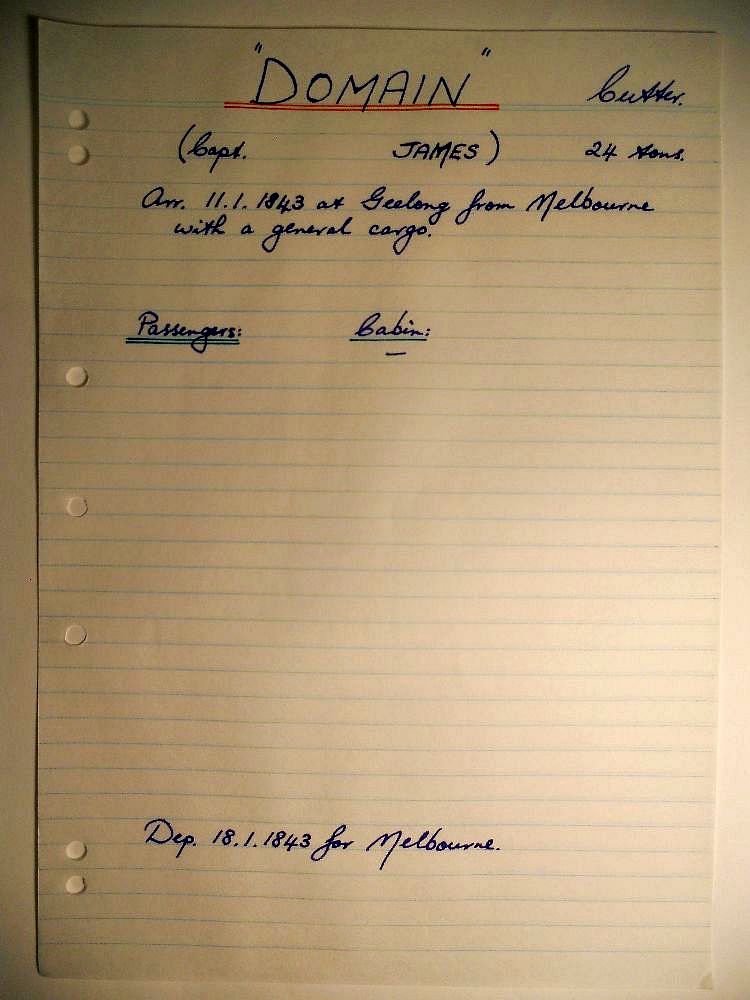 "DOMAIN" Cutter.
(Capt. JAMES) 24 tons.
Arr. 11.1.1843 at Geelong from Melbourne
with a general cargo.
Passengers: Cabin:
—
Dep. 18.1.1843 for Melbourne.